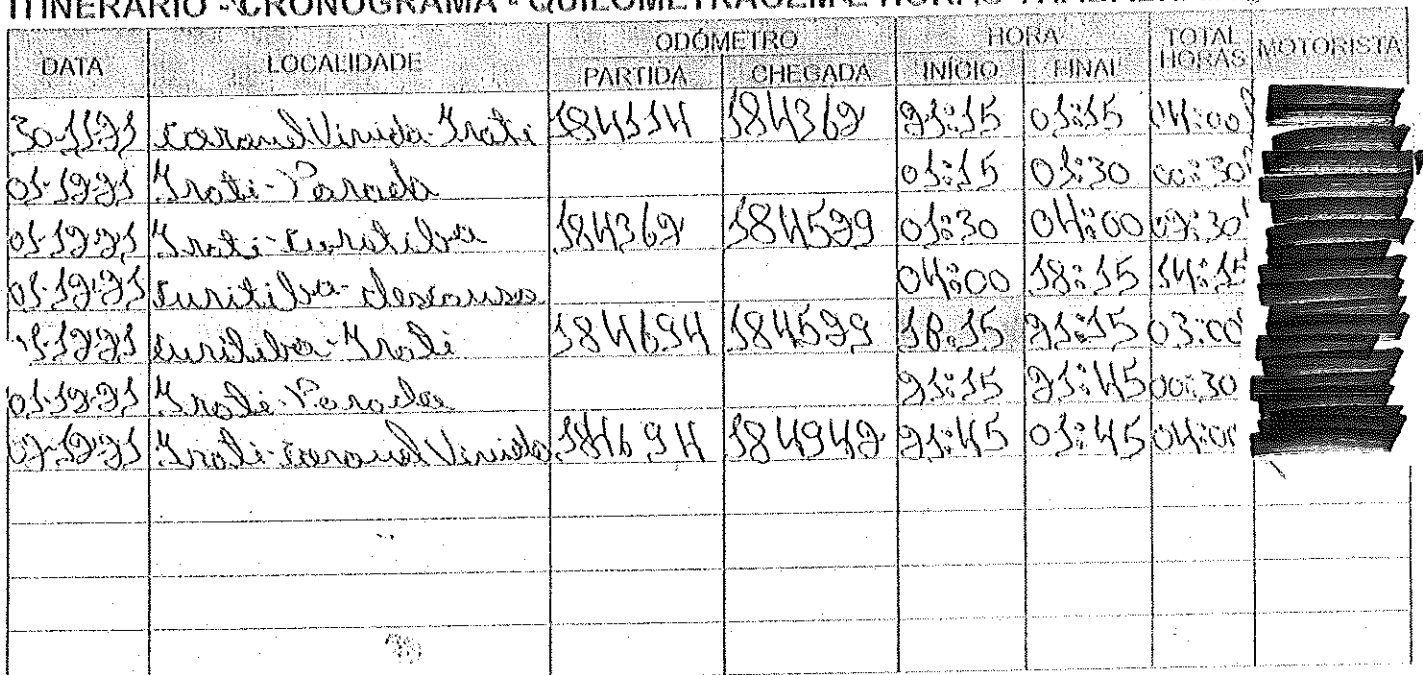 ITINERÁRIO - CRONOGRAMA - QUILOMETRAGEM E HORAS
DATA LOCALIDADE ODÔMETRO HORA TOTAL HORAS MOTORISTA
PARTIDA CHEGADA INÍCIO FINAL
30-11-21 Coronel Vivida-Irati 184114 184362 21:15 01:15 04:00
01-12-21 Irati-Parada 01:15 01:30 00:30
01-12-21 Irati-Curitiba 184362 184522 01:30 04:00 02:30
01-12-21 Curitiba-descanso 04:00 18:15 14:15
1-12-21 Curitiba-Irati 184694 184522 18:15 21:15 03:00
01-12-21 Irati-Parada 21:15 21:45 00:30
02-12-21 Irati-Coronel Vivida 184694 184942 21:45 01:45 04:00